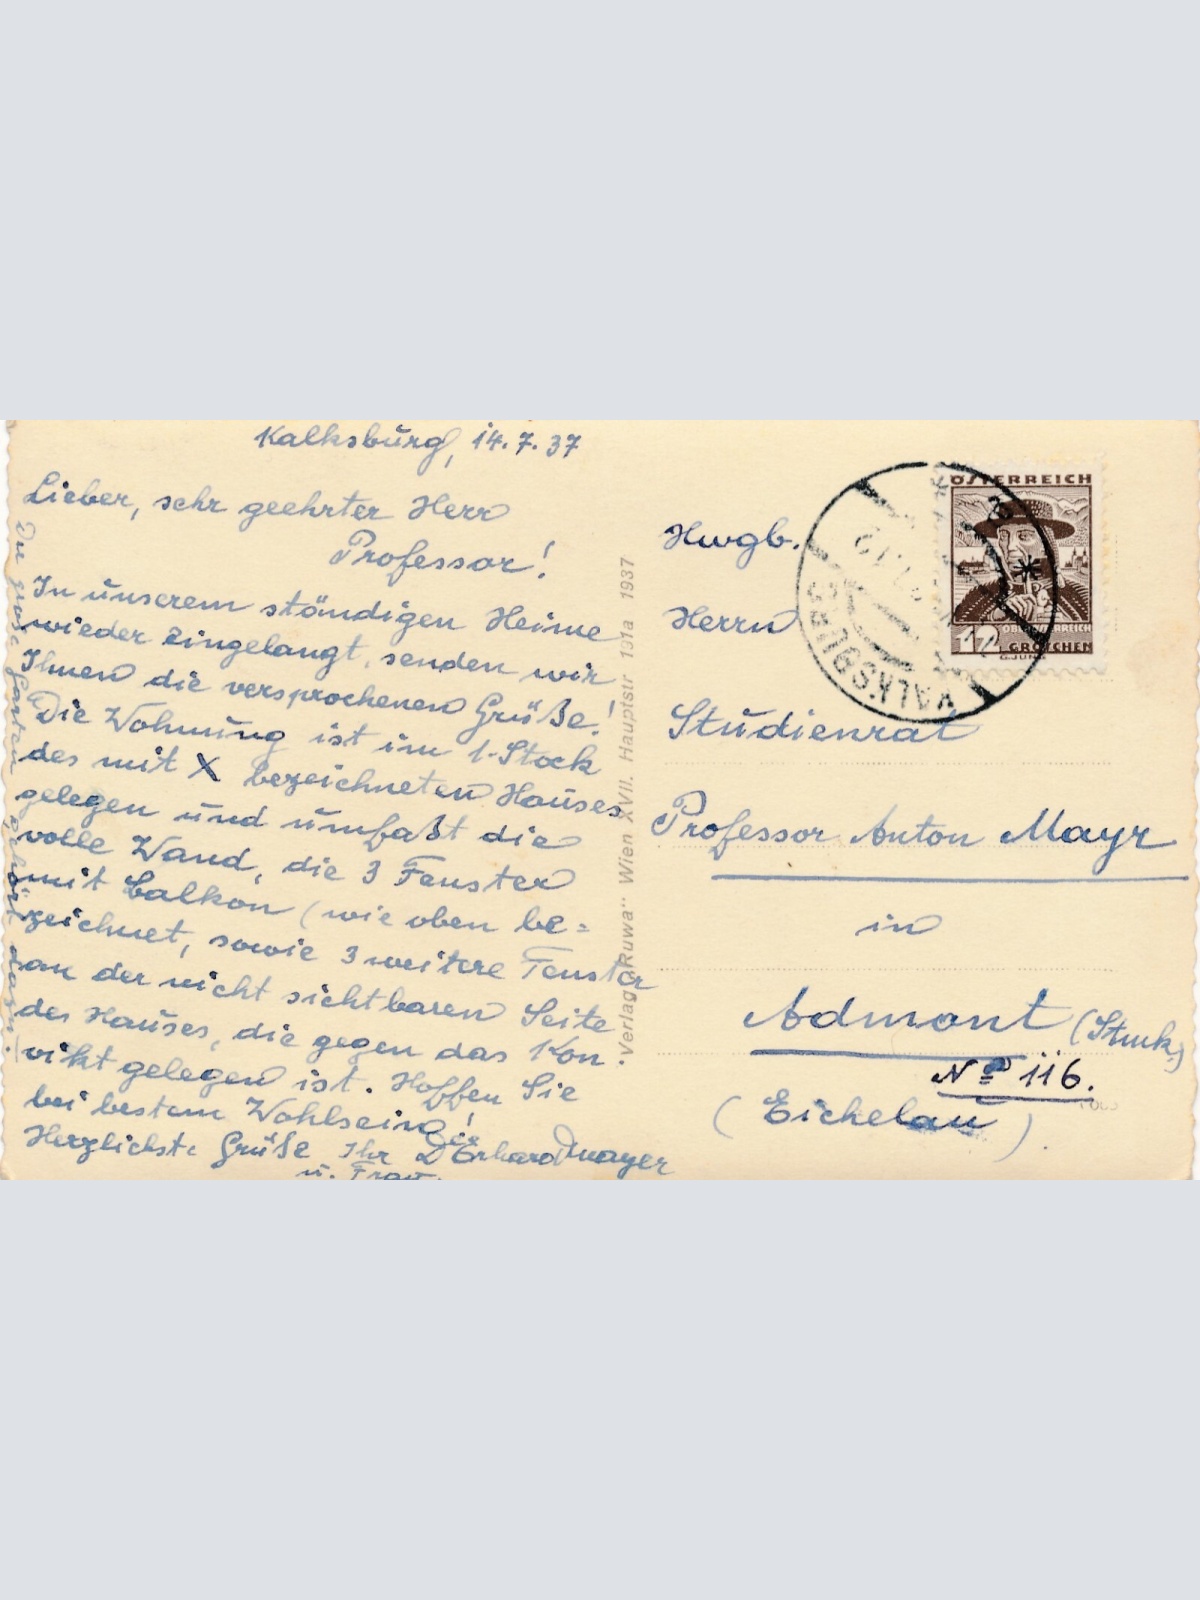 Kalksburg, 14.7.37
Lieber, sehr geehrter Herr
Professor!
In unserem ständigen Heime
wieder eingelangt, senden wir
Ihnen die versprochenen Grüße!
Die Wohnung ist im 1. Stock
des mit X bezeichneten Hauses
gelegen und umfaßt die
volle Wand, die 3 Fenster
mit Balkon (wie oben be=
zeichnet, sowie 3 weitere Fenster
an der nicht sichtbaren Seite
des Hauses, die gegen das Kon-
vikt gelegen ist. Hoffen Sie
bei bestem Wohlsein!
Herzlichste Grüße Ihr Dr Erhard Mayer
u. Frau.
Der große Garten gehört dazu!
Verlag „Ruwa" Wien XVII. Hauptstr 131a 1937
ÖSTERREICH
OBERÖSTERREICH
12 GROSCHEN
KALKSBURG
Hwgb.
Herrn
Studienrat
Professor Anton Mayr
in
Admont (Stmk.)
No 116.
(Eichelau)